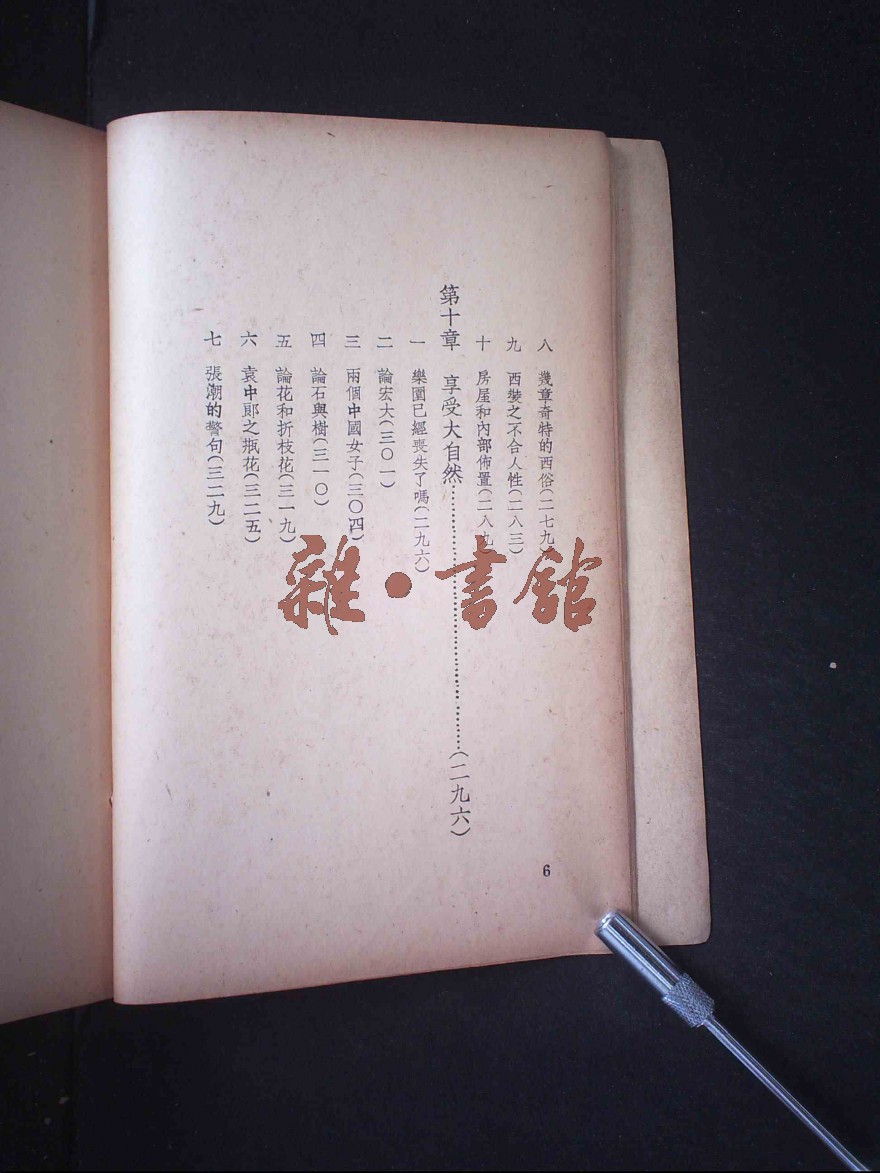 八　幾章奇特的西俗(二七九)
九　西裝之不合人性(二八三)
十　房屋和內部佈置(二八九)
第十章　享受大自然……………………(二九六)
一　樂園已經喪失了嗎(二九六)
二　論宏大(三〇一)
三　兩個中國女子(三〇四)
四　論石與樹(三一〇)
五　論花和折枝花(三一九)
六　袁中郞之瓶花(三二五)
七　張潮的警句(三二九)
6
雜·書館